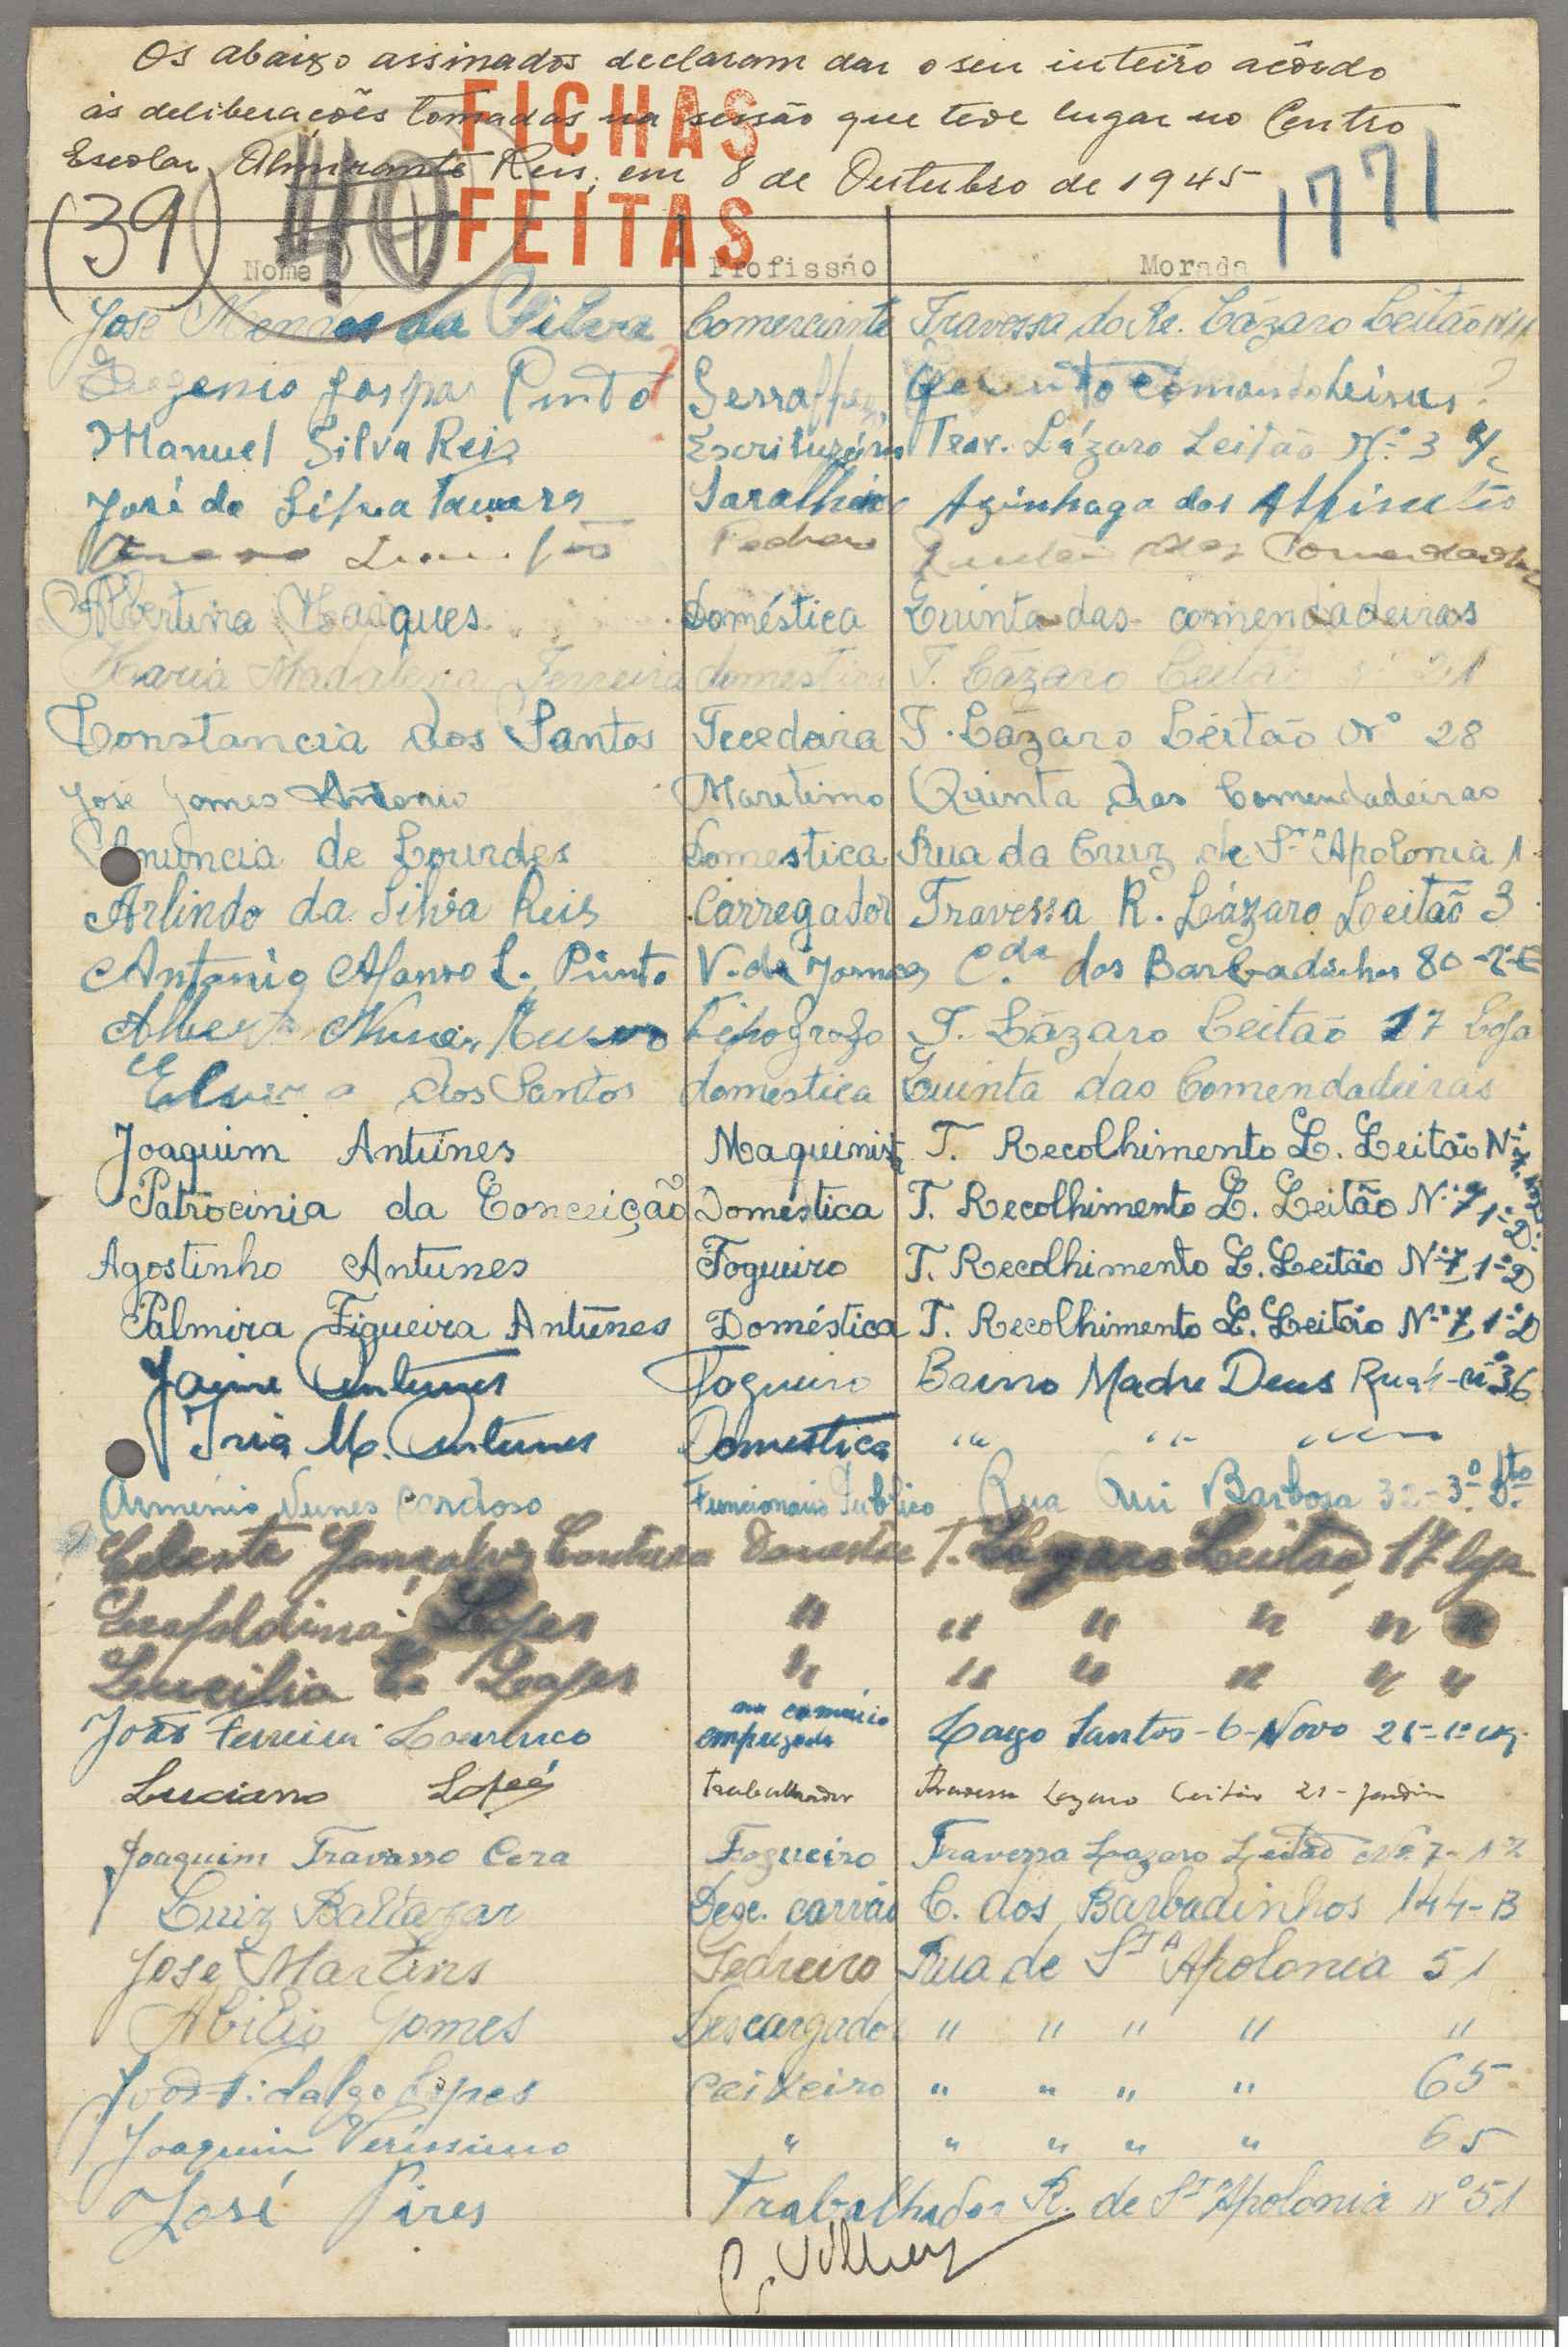 Os abaixo assinados declaram dar o seu inteiro acôrdo
ás deliberações tomadas na sessão que teve lugar no Centro
Escolar Almirante Reis, em 8 de Outubro de 1945
FICHAS
FEITAS
1771
(39) 40
Nome Profissão Morada
José Mendes da Silva Comerciante Travessa do Re. Lázaro Leitão Nº 11
Eugenio Gaspar Pinto
Manuel Silva Reis Escriturário Trav. Lázaro Leitão Nº 3
José da Silva Tavares Azinhaga dos Alfinetes
Albertina Marques Doméstica Quinta das comendadeiras
Maria Madalena Ferreira domestica T. Lázaro Leitão nº 21
Constancia dos Santos Tecedeira T. Lázaro Leitão Nº 28
José Gomes Antonio Maretimo Quinta das Comendadeiras
Anuncia de Lourdes Domestica Rua da Cruz de Stª Apolonia 1
Arlindo da Silva Reis Carregador Travessa R. Lázaro Leitão 3
Antonio Afonso L. Pinto V. de Jornaes C.da dos Barbadinhos 80-2-E
Alberto Nunes tipografo T. Lázaro Leitão 17 Loja
Elvira dos Santos domestica Quinta das Comendadeiras
Joaquim Antunes Maquinista T. Recolhimento L. Leitão Nº 7
Patrocinia da Conceição Doméstica T. Recolhimento L. Leitão Nº 7 1º D.
Agostinho Antunes Fogueiro T. Recolhimento L. Leitão Nº 7, 1º D
Palmira Figueira Antunes Doméstica T. Recolhimento L. Leitão Nº 7, 1º D
Jaime Antunes Fogueiro Bairro Madre Deus Rua 4-nº 36
Iria M. Antunes Domestica " " "
Armenio Nunes Cardoso Funcionario Publico Rua Rui Barbosa 32-3º Dto
Celeste Gonçalves Domestica T. Lazaro Leitão, 17 loja
Leopoldina Lopes " " " " " "
Lucilia C. Lopes " " " " " "
João Ferreira Lourenco empregado no comércio Largo Santos-o-Novo 21-1º
Luciano Lopes trabalhador Travessa Lazaro Leitão 21-Jardim
Joaquim Travasso Cera Fogueiro Travessa Lazaro Leitão Nº 7-1º
Luiz Baltazar Desc. carvão C. dos Barbadinhos 144-B
José Martins Pedreiro Rua de Stª Apolonia 51
Abilio Gomes Descarregador " " " " "
João Fidalgo Lopes caixeiro " " " " 65
Joaquim Verissimo " " " " " 65
José Pires Trabalhador R. de Stª Apolonia nº 51